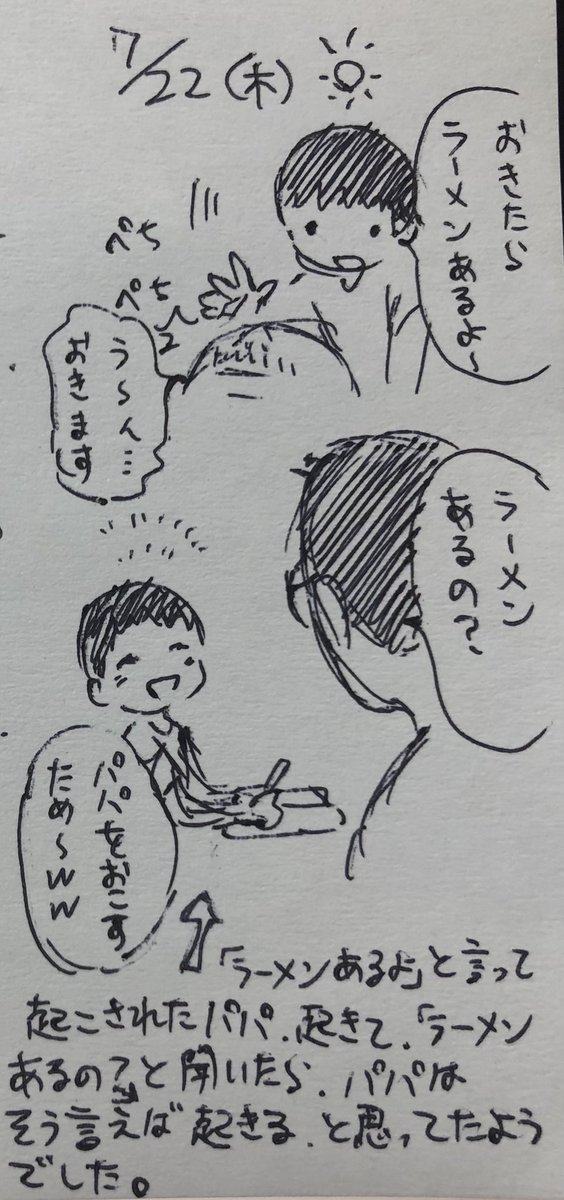 7/22(木)
おきたら
ラーメンあるよ〜
ぺち
ぺち
う〜ん…
おきます
ラーメン
あるの?
パパをおこす
ため〜ww
「ラーメンあるよ」と言って
起こされたパパ、起きて、「ラーメン
あるの?と聞いたら、パパは
そう言えば起きる、と思ってたよう
でした。